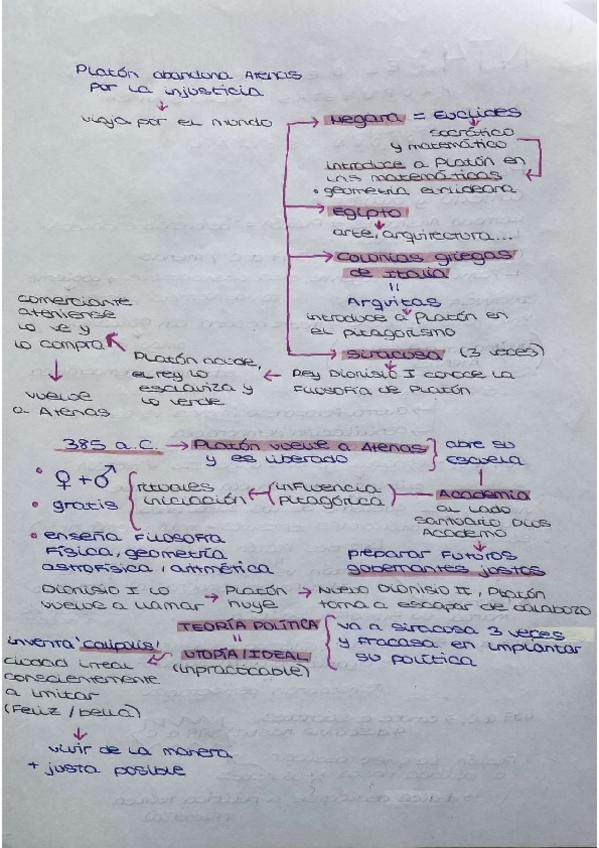 Platón abandona Atenas
por la injusticia
↓
viaja por el mundo
→ Megara = Euclides
socrático
y matemático
introduce a Platón en
las matemáticas
• geometría euclideana
→ Egipto
arte, arquitectura...
→ colonias griegas
de Italia
=
Arquitas
introduce a Platón en
el pitagorismo
→ Siracusa (3 veces)
Rey Dionisio I conoce la
filosofía de Platón
← Platón
el rey lo
esclaviza y
lo vende
comerciante
ateniense
lo ve y
lo compra
↓
vuelve
a Atenas
385 a.C. → Platón vuelve a Atenas
y es liberado
abre su
escuela
Academia
al lado
santuario
Academo
↓
preparar futuros
gobernantes justos
influencia
pitagórica
rituales
iniciación
• ♀ + ♂
• gratis
• enseña filosofía
física, geometría
astrofísica, aritmética
Dionisio I lo
vuelve a llamar
→ Platón
huye
→ Nuevo Dionisio II, Platón
torna a escapar de calabozo
TEORÍA POLÍTICA
=
UTOPÍA/IDEAL
(impracticable)
va a Siracusa 3 veces
y fracasa en implantar
su política
inventa
ciudad irreal
conscientemente
a imitar
(feliz/bella)
↓
vivir de la manera
+ justa posible